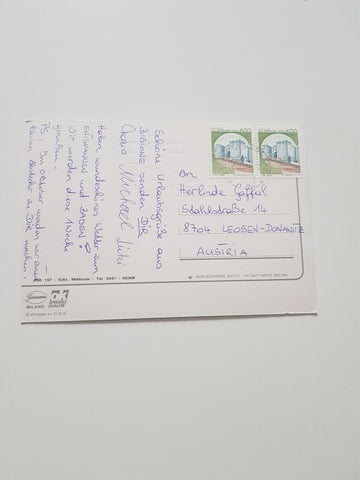 Schöne Urlaubsgrüße aus
BIBIONE senden DIR
Michael
Haben wunderschönes Wetter zum
ENTSPANNEN und BADEN!
Wir wurden diese 1 Woche
genießen.
PS. Im Oktober werden wir einen
kleinen Abstecher zu Dir machen.
An
Herlinde
Stahlstraße 14
8704 LEOBEN-DONAWITZ
AUSTRIA
NON SCRIVERE SOTTO - DO NOT WRITE BELOW
197 - Ediz. Matticusi - Tel. 0431 - 50308
MILANO
© Printed in C.E.E.